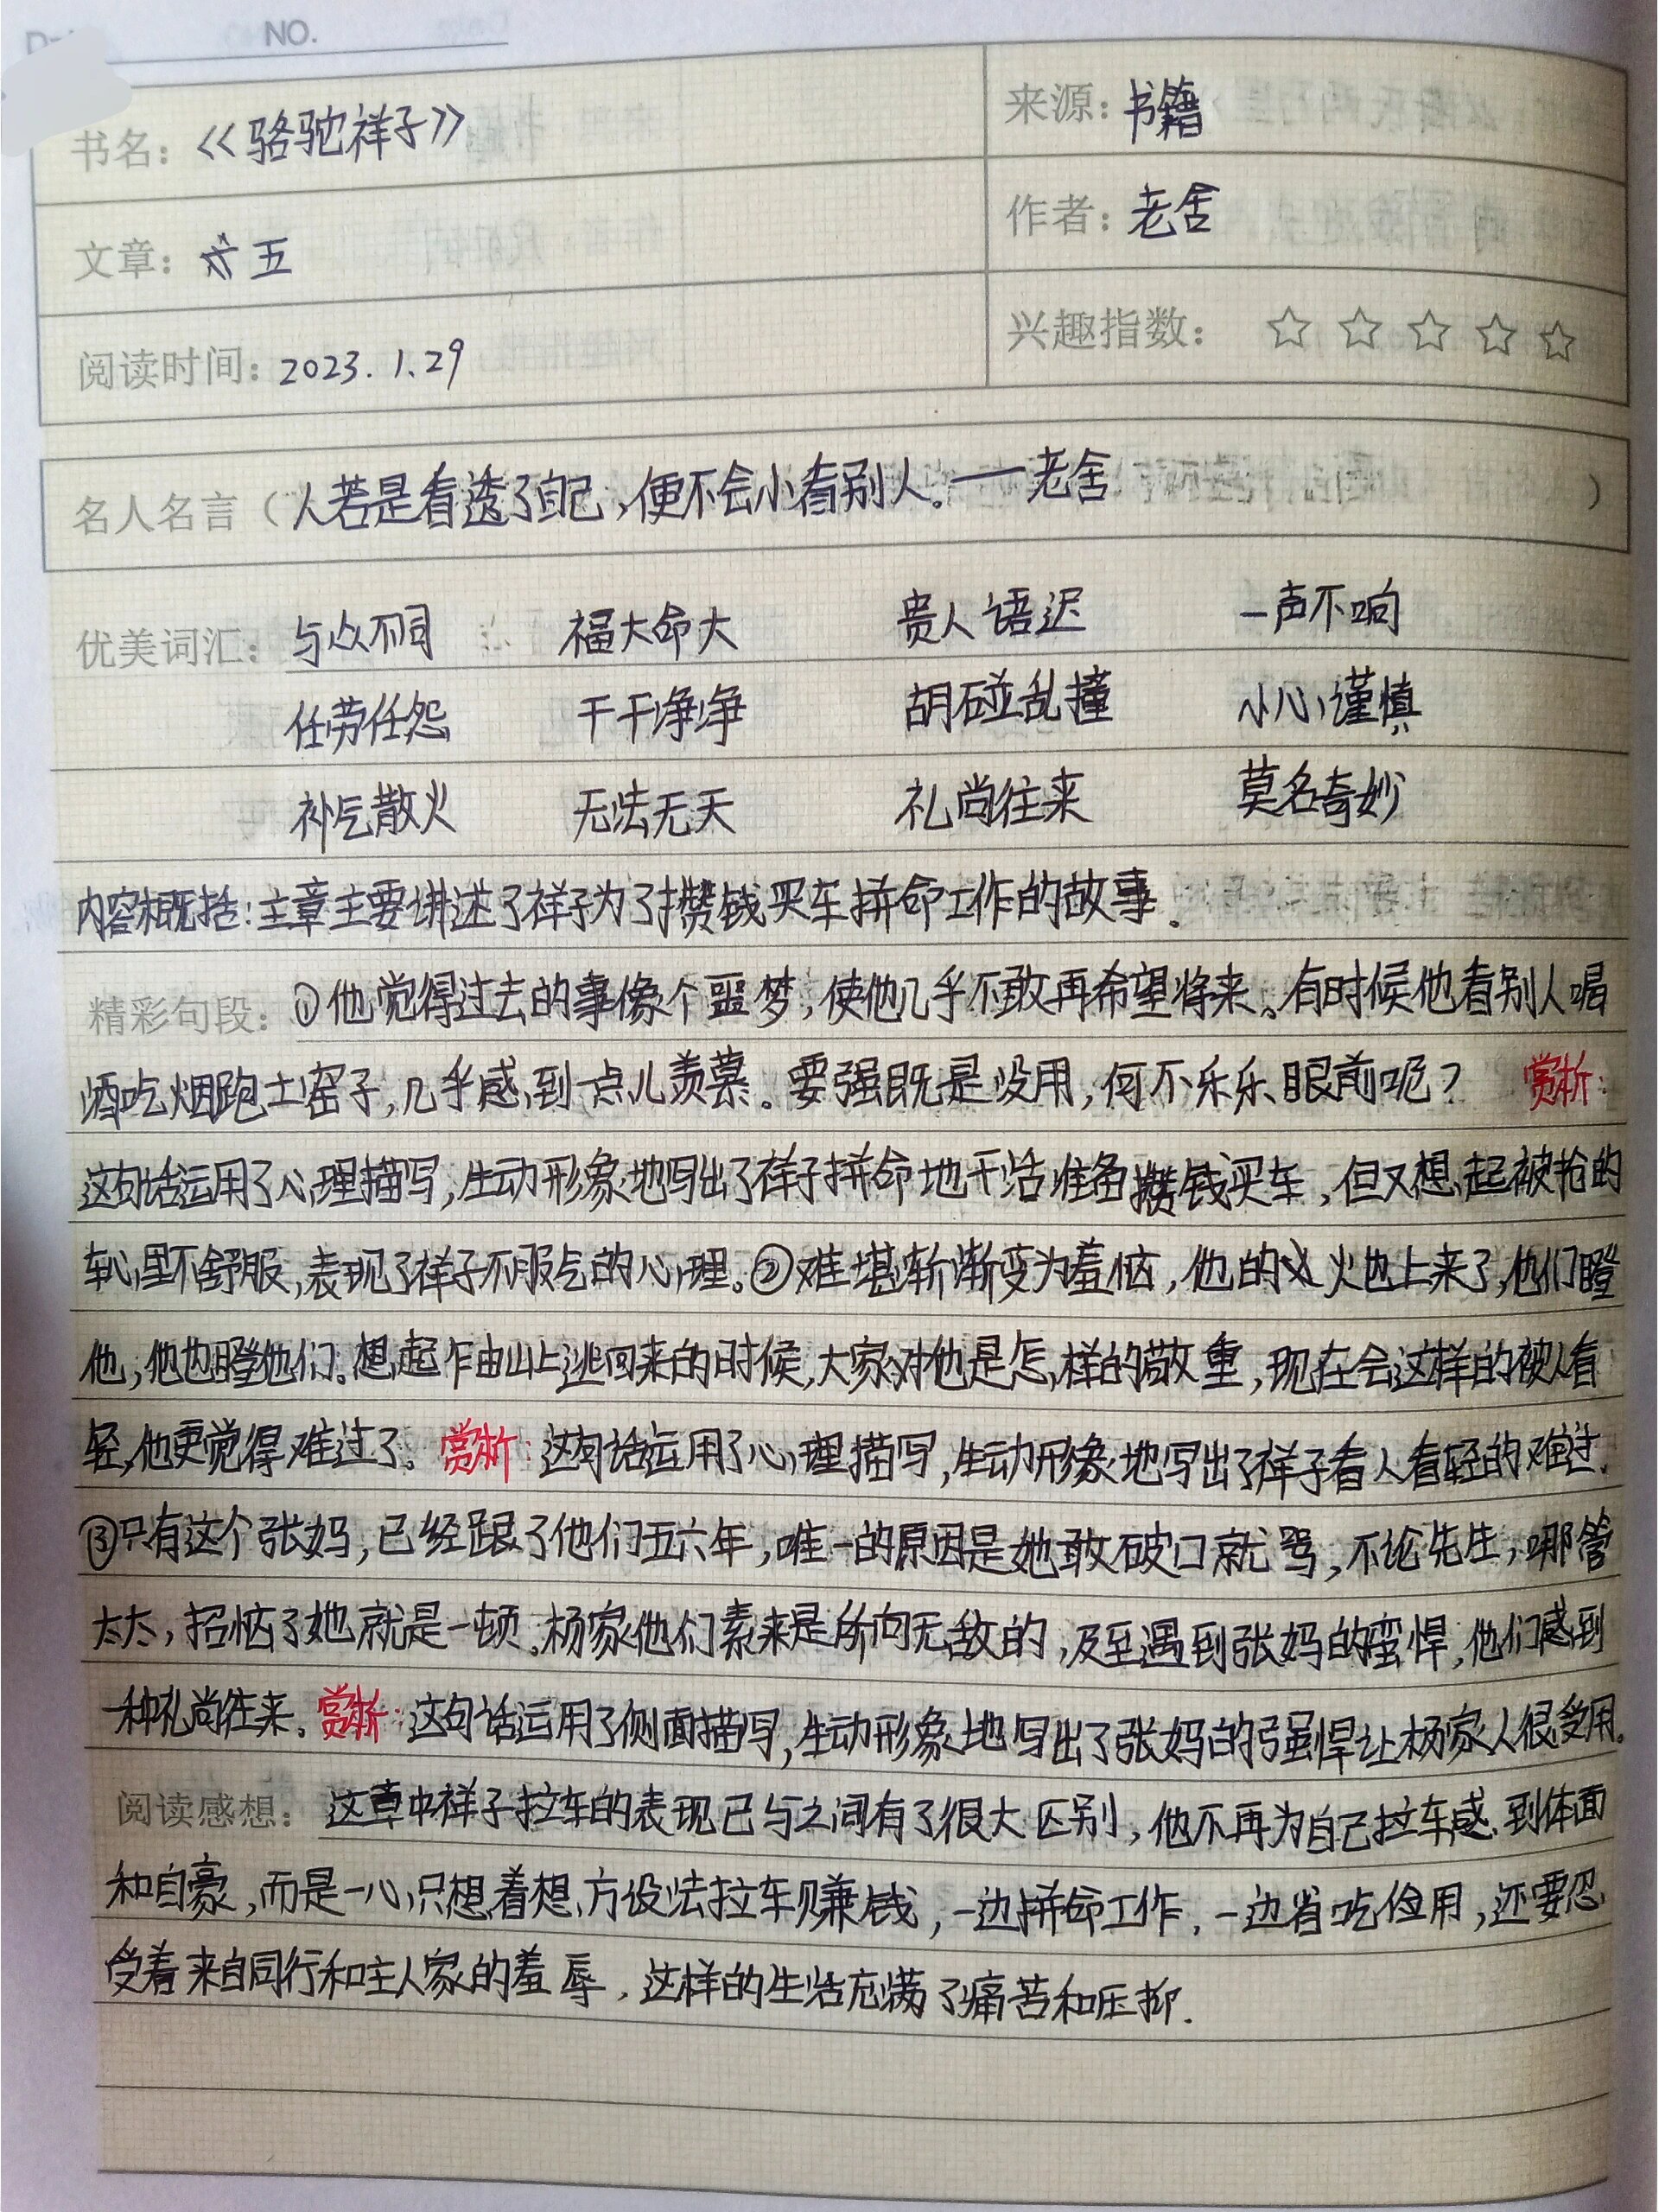 NO.
书名：《骆驼祥子》 来源：书籍
文章：五 作者：老舍
阅读时间：2023.1.29 兴趣指数：☆☆☆☆☆
名人名言（人若是看透了自己，便不会小看别人。——老舍）
优美词汇：与众不同 福大命大 贵人语迟 一声不响
任劳任怨 干干净净 胡碰乱撞 小心谨慎
补气散火 无法无天 礼尚往来 莫名奇妙
内容概括：主章主要讲述了祥子为了攒钱买车拼命工作的故事.
精彩句段：①他觉得过去的事像个噩梦，使他几乎不敢再希望将来。有时候他看别人喝
酒吃烟跑土窑子，几乎感到一点儿羡慕。要强既是没用，何不乐乐眼前呢？ 赏析：
这句话运用了心理描写，生动形象地写出了祥子拼命地干活准备攒钱买车，但又想起被抢的
车心里不舒服，表现了祥子不服气的心理。②难堪渐渐变为羞恼，他的火也上来了，他们瞪
他，他也瞪他们。想起乍由山上逃回来的时候，大家对他是怎样的敬重，现在会这样的被人看
轻，他更觉得难过了。赏析：这句话运用了心理描写，生动形象地写出了祥子看人看轻的难过.
③只有这个张妈，已经跟了他们五六年，唯一的原因是她敢破口就骂，不论先生，哪管
太太，招恼了她就是一顿。杨家他们素来是所向无敌的，及至遇到张妈的蛮悍，他们感到
一种礼尚往来。赏析：这句话运用了侧面描写，生动形象地写出了张妈的强悍让杨家人很受用。
阅读感想：这章中祥子拉车的表现已与之间有了很大区别，他不再为自己拉车感到体面
和自豪，而是一心只想着想方设法拉车赚钱，一边拼命工作，一边省吃俭用，还要忍
受着来自同行和主人家的羞辱，这样的生活充满了痛苦和压抑.